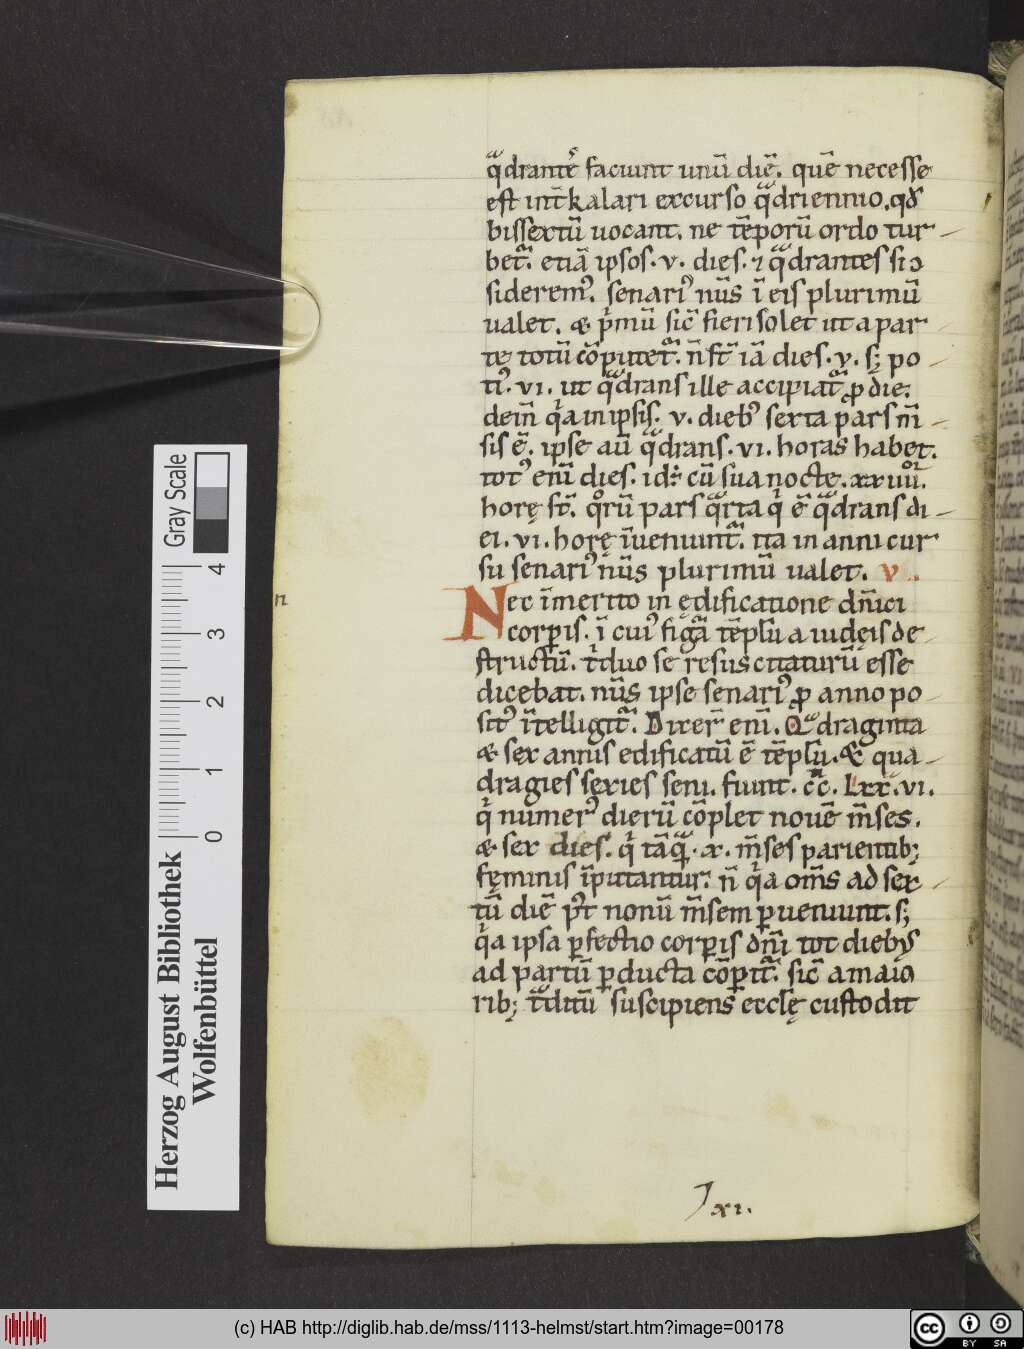 qᵃdrantes̄ faciunt unū diē. quē necesse
est int̄kalari excurso qᵃdriennio. qđ
bissextū uocant. ne tēporū ordo tur
bet᷑. etiā ipsos. v. dies. ⁊ qᵃdrantes si ɔ
siderem᷒. senari᷒ nūs ī eis plurimū
ualet. & pⁱmū sic̄ fieri solet ut a par
te totū cōputet᷑. n̄ st̄ iā dies. v. s; po
ti᷒. vi. ut qᵃdrans ille accipiat᷑ ꝓ die;
dein̄ qⁱa in ipsis. v. dieb᷒ sexta pars m̄
sis ē. ipse aū qᵃdrans. vi. horas habet.
tot᷒ enī dies. id; cū sua nocte. xxiiiiᵒʳ.
horę st̄. qᵒrū pars qᵃrta qⁱ ē qᵃdrans di
ei. vi. horę īueniunt᷑. ita in anni cur
su senari᷒ nūs plurimū ualet. v
Nec īmerito in ędificatione dn̄ici
corꝑis. ī cui᷒ figᵃ tēplū a iudeis de
structū. tⁱduo se resuscitaturū esse
dicebat. nūs ipse senari᷒ ꝓ anno po
sit᷒ ītelligit᷑. Dixer̄ enī. Qᵃdraginta
& sex annis edificatū ē tēplū. & qua
dragies sexies seni. fiunt. cc̄. Lxx. vi.
qⁱ numer᷒ dierū cōplet nouē m̄ses.
& sex dies. qⁱ tāqᵃ. x. m̄ses parientib;
fęminis īputantur. n̄ qⁱa om̄s ad sex
tū diē p᷒t nonū m̄sem ꝑueniunt. s;
qⁱa ipsa ꝑfectio corꝑis dn̄i tot dieb᷒
ad partū ꝑducta cōꝑit᷑. sic̄ a maio
rib; tᵃditū suscipiens ecclę custodit
n
xi.
Gray Scale
0 1 2 3 4
Herzog August Bibliothek
Wolfenbüttel
(c) HAB http://diglib.hab.de/mss/1113-helmst/start.htm?image=00178
cc BY SA